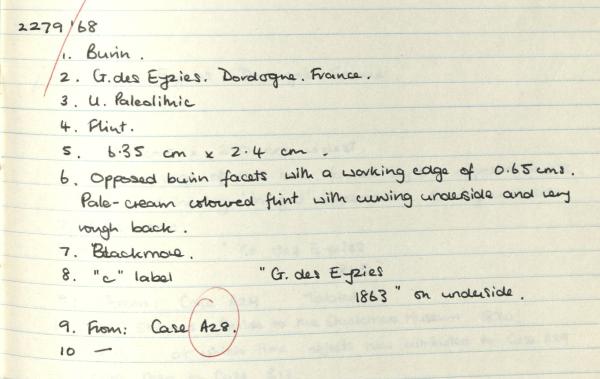 2279/68
1. Burin.
2. G. des Eyzies. Dordogne. France.
3. U. Paleolithic
4. Flint.
5. 6.35 cm x 2.4 cm.
6. Opposed burin facets with a working edge of 0.65 cms.
Pale-cream coloured flint with curving underside and very
rough back.
7. Blackmore.
8. "C" label "G. des Eyzies
1863" on underside.
9. From: Case A28.
10 —